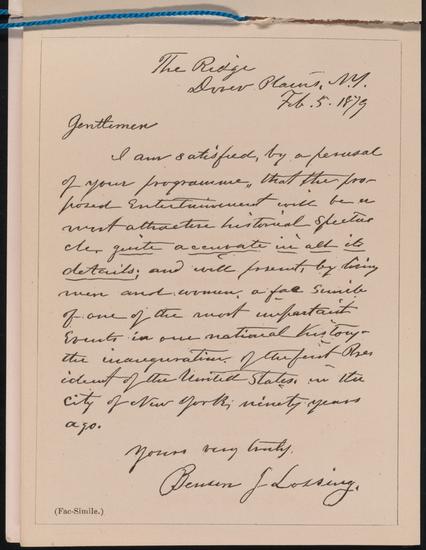 The Ridge
Dover Plains, N.Y.
Feb. 5. 1879
Gentlemen
I am satisfied, by a perusal
of your programme, that the pro-
posed Entertainment will be a
most attractive historical Specta-
cle, quite accurate in all its
details; and will present, by living
men and women, a fac simile
of one of the most important
Events in our national history—
the inauguration of the first Pres
ident of the United States, in the
City of New York, ninety years
ago.
Yours very truly,
Benson J Lossing.
(Fac-Simile.)